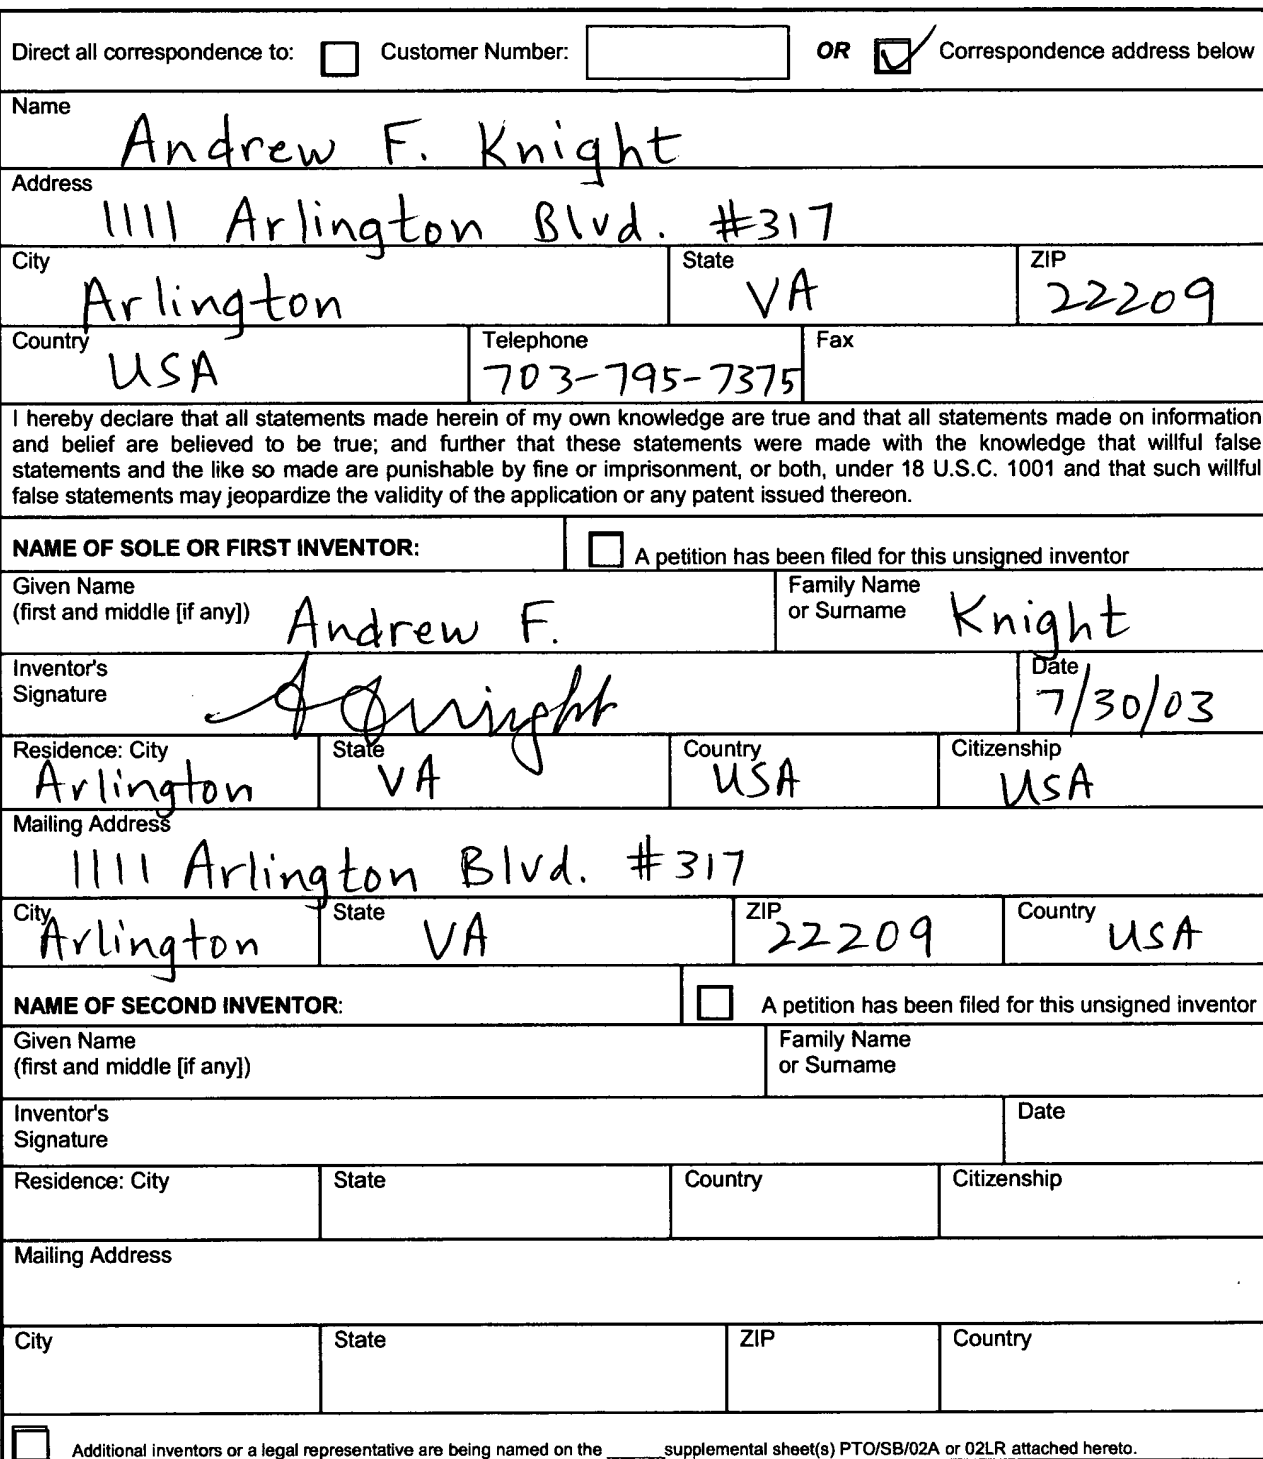 Direct all correspondence to: Customer Number: OR Correspondence address below
Name
Andrew F. Knight
Address
1111 Arlington Blvd. #317
City State ZIP
Arlington VA 22209
Country Telephone Fax
USA 703-795-7375
I hereby declare that all statements made herein of my own knowledge are true and that all statements made on information
and belief are believed to be true; and further that these statements were made with the knowledge that willful false
statements and the like so made are punishable by fine or imprisonment, or both, under 18 U.S.C. 1001 and that such willful
false statements may jeopardize the validity of the application or any patent issued thereon.
NAME OF SOLE OR FIRST INVENTOR: A petition has been filed for this unsigned inventor
Given Name Family Name
(first and middle [if any]) Andrew F. or Surname Knight
Inventor's Date
Signature A Knight 7/30/03
Residence: City State Country Citizenship
Arlington VA USA USA
Mailing Address
1111 Arlington Blvd. #317
City State ZIP Country
Arlington VA 22209 USA
NAME OF SECOND INVENTOR: A petition has been filed for this unsigned inventor
Given Name Family Name
(first and middle [if any]) or Surname
Inventor's Date
Signature
Residence: City State Country Citizenship
Mailing Address
City State ZIP Country
Additional inventors or a legal representative are being named on the _____ supplemental sheet(s) PTO/SB/02A or 02LR attached hereto.